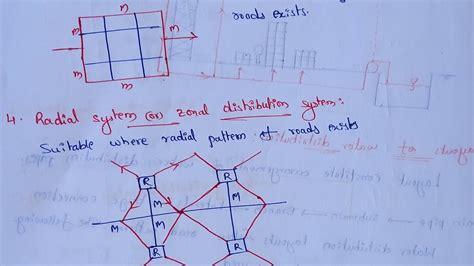 roads exists.
m
m
m
m
4. Radial system (or) zonal distribution system:
Suitable where radial pattern of roads exists
R
R
M
M
M
M
R
R